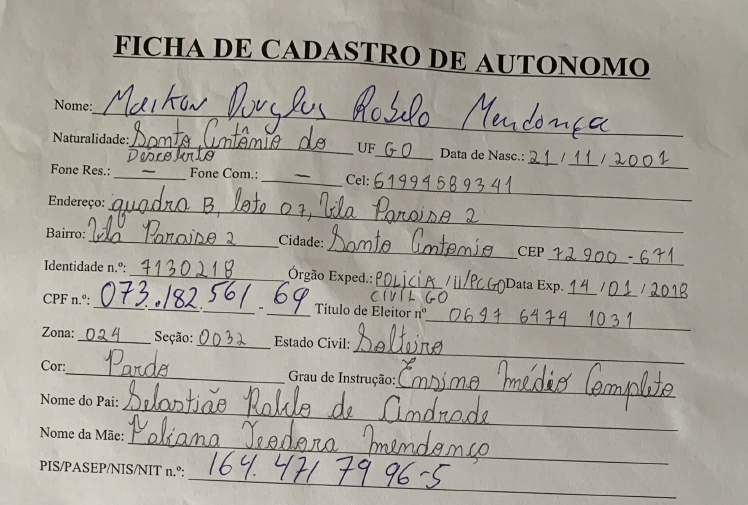 FICHA DE CADASTRO DE AUTONOMO
Nome: Maikon Douglas Rabelo Mendonça
Naturalidade: Santo Antônio do Descoberto UF GO Data de Nasc.: 21/11/2001
Fone Res.: — Fone Com.: — Cel: 61994589341
Endereço: quadra B, lote 07, Vila Paraiso 2
Bairro: Vila Paraiso 2 Cidade: Santo Antonio CEP 72900-671
Identidade n.º: 7130218 Órgão Exped.: POLICIA CIVIL GO /II/PCGO Data Exp. 14/01/2018
CPF n.º: 073.182.561-69 Título de Eleitor nº 0697 6474 1031
Zona: 024 Seção: 0032 Estado Civil: Solteiro
Cor: Pardo Grau de Instrução: Ensino Médio Completo
Nome do Pai: Sebastião Rabelo de Andrade
Nome da Mãe: Poliana Teodora Mendonço
PIS/PASEP/NIS/NIT n.º: 164.471 79 96-5